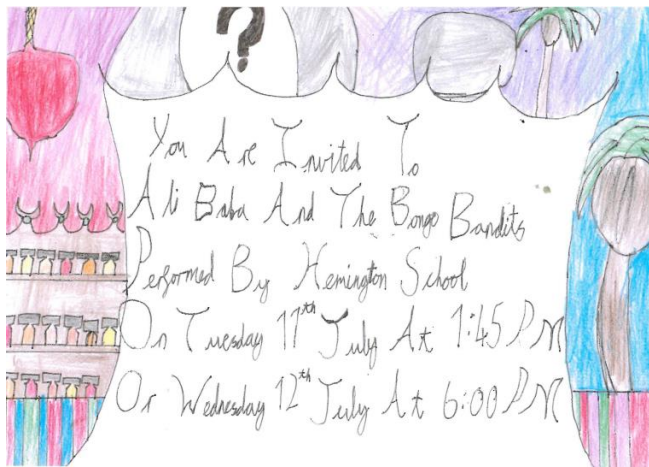 ?
You Are Invited To
Ali Baba And The Bongo Bandits
Performed By Hemington School
On Tuesday 11th July At 1:45 PM
Or Wednesday 12th July At 6:00 PM